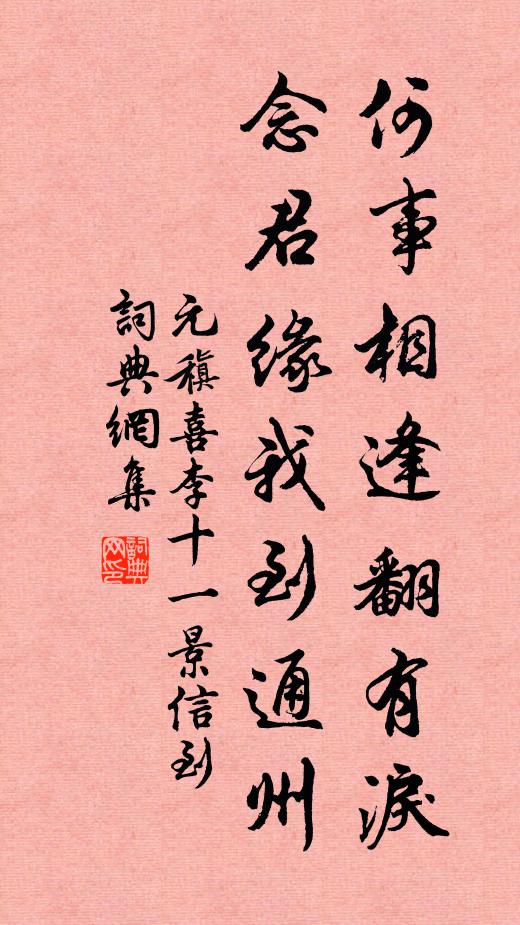 何事相逢翻有淚
念君緣我到通州
元稹喜李十一景信到
詞典網集
詞典網印